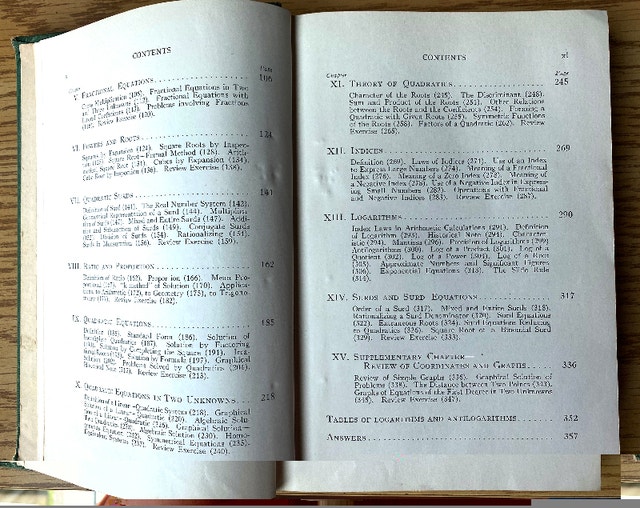 CONTENTS
Page
V. FRACTIONAL EQUATIONS 106
Cross Multiplication (106). Fractional Equations in Two
and Three Unknowns (112). Fractional Equations with
Literal Coefficients (113). Problems involving Fractions
Review Exercise (120).
VI. POWERS AND ROOTS 124
Squares by Expansion (124). Square Roots by Inspec-
Square Root—Formal Method (128). Arith-
Square Root (131). Cubes by Expansion (134).
Cube Root by Inspection (136). Review Exercise (138).
VII. QUADRATIC SURDS 141
Definition of Surd (141). The Real Number System (142).
Geometrical Representation of a Surd (144). Multiplica-
tion of Surds (147). Mixed and Entire Surds (147). Addi-
tion and Subtraction of Surds (149). Conjugate Surds
Division of Surds (154). Rationalizing (151).
Surds in Mensuration (156). Review Exercise (159).
VIII. RATIO AND PROPORTION 162
Definition of Ratio (162). Proportion (166). Mean Pro-
portional "k method" of Solution (170). Applica-
tions to Arithmetic (172), to Geometry (175), to Trigono-
Review Exercise (182).
IX. QUADRATIC EQUATIONS 185
Definition (185). Standard Form (186). Solution of
Incomplete Quadratics (187). Solution by Factoring
Solving by Completing the Square (191). Irra-
Solution by Formula (197). Graphical
Problems Solved by Quadratics (204).
Review Exercise (213).
X. QUADRATIC EQUATIONS IN TWO UNKNOWNS 218
Definition of a Linear-Quadratic System (218). Graphical
Solution of a Linear-Quadratic (220). Algebraic Solu-
Graphical Solution—
Two Quadratics Algebraic Solution (230). Homo-
geneous Equations Symmetrical Equations (235).
Equivalent Systems Review Exercise (240).
CONTENTS xi
Chapter Page
XI. THEORY OF QUADRATICS 245
Character of the Roots (245). The Discriminant (248).
Sum and Product of the Roots (251). Other Relations
between the Roots and the Coefficients (254). Forming a
Quadratic with Given Roots (255). Symmetric Functions
of the Roots (258). Factors of a Quadratic (262). Review
Exercise (265).
XII. INDICES 269
Definition (269). Laws of Indices (271). Use of an Index
to Express Large Numbers (274). Meaning of a Fractional
Index (276). Meaning of a Zero Index (282). Meaning of
a Negative Index (282). Use of a Negative Index in Express-
ing Small Numbers (287). Operations with Fractional
and Negative Indices (283). Review Exercise (287).
XIII. LOGARITHMS 290
Index Laws in Arithmetic Calculations (291). Definition
of Logarithm (293). Historical Note (291). Character-
istic (294). Mantissa (296). Precision of Logarithms (299)
Antilogarithms (300). Log of a Product (301). Log of a
Quotient (302). Log of a Power (304). Log of a Root
(305). Approximate Numbers and Significant Figures
(306). Exponential Equations (313). The Slide Rule
(314).
XIV. SURDS AND SURD EQUATIONS 317
Order of a Surd (317). Mixed and Entire Surds (318).
Rationalizing a Surd Denominator (320). Surd Equations
(322). Extraneous Roots (324). Surd Equations Reducing
to Quadratics (326). Square Root of a Binomial Surd
(329). Review Exercise (333).
XV. SUPPLEMENTARY CHAPTER—
REVIEW OF COORDINATES AND GRAPHS 336
Review of Simple Graphs (336). Graphical Solution of
Problems (338). The Distance between Two Points (343).
Graphs of Equations of the First Degree in Two Unknowns
(345). Review Exercise (347).
TABLES OF LOGARITHMS AND ANTILOGARITHMS 352
ANSWERS 357